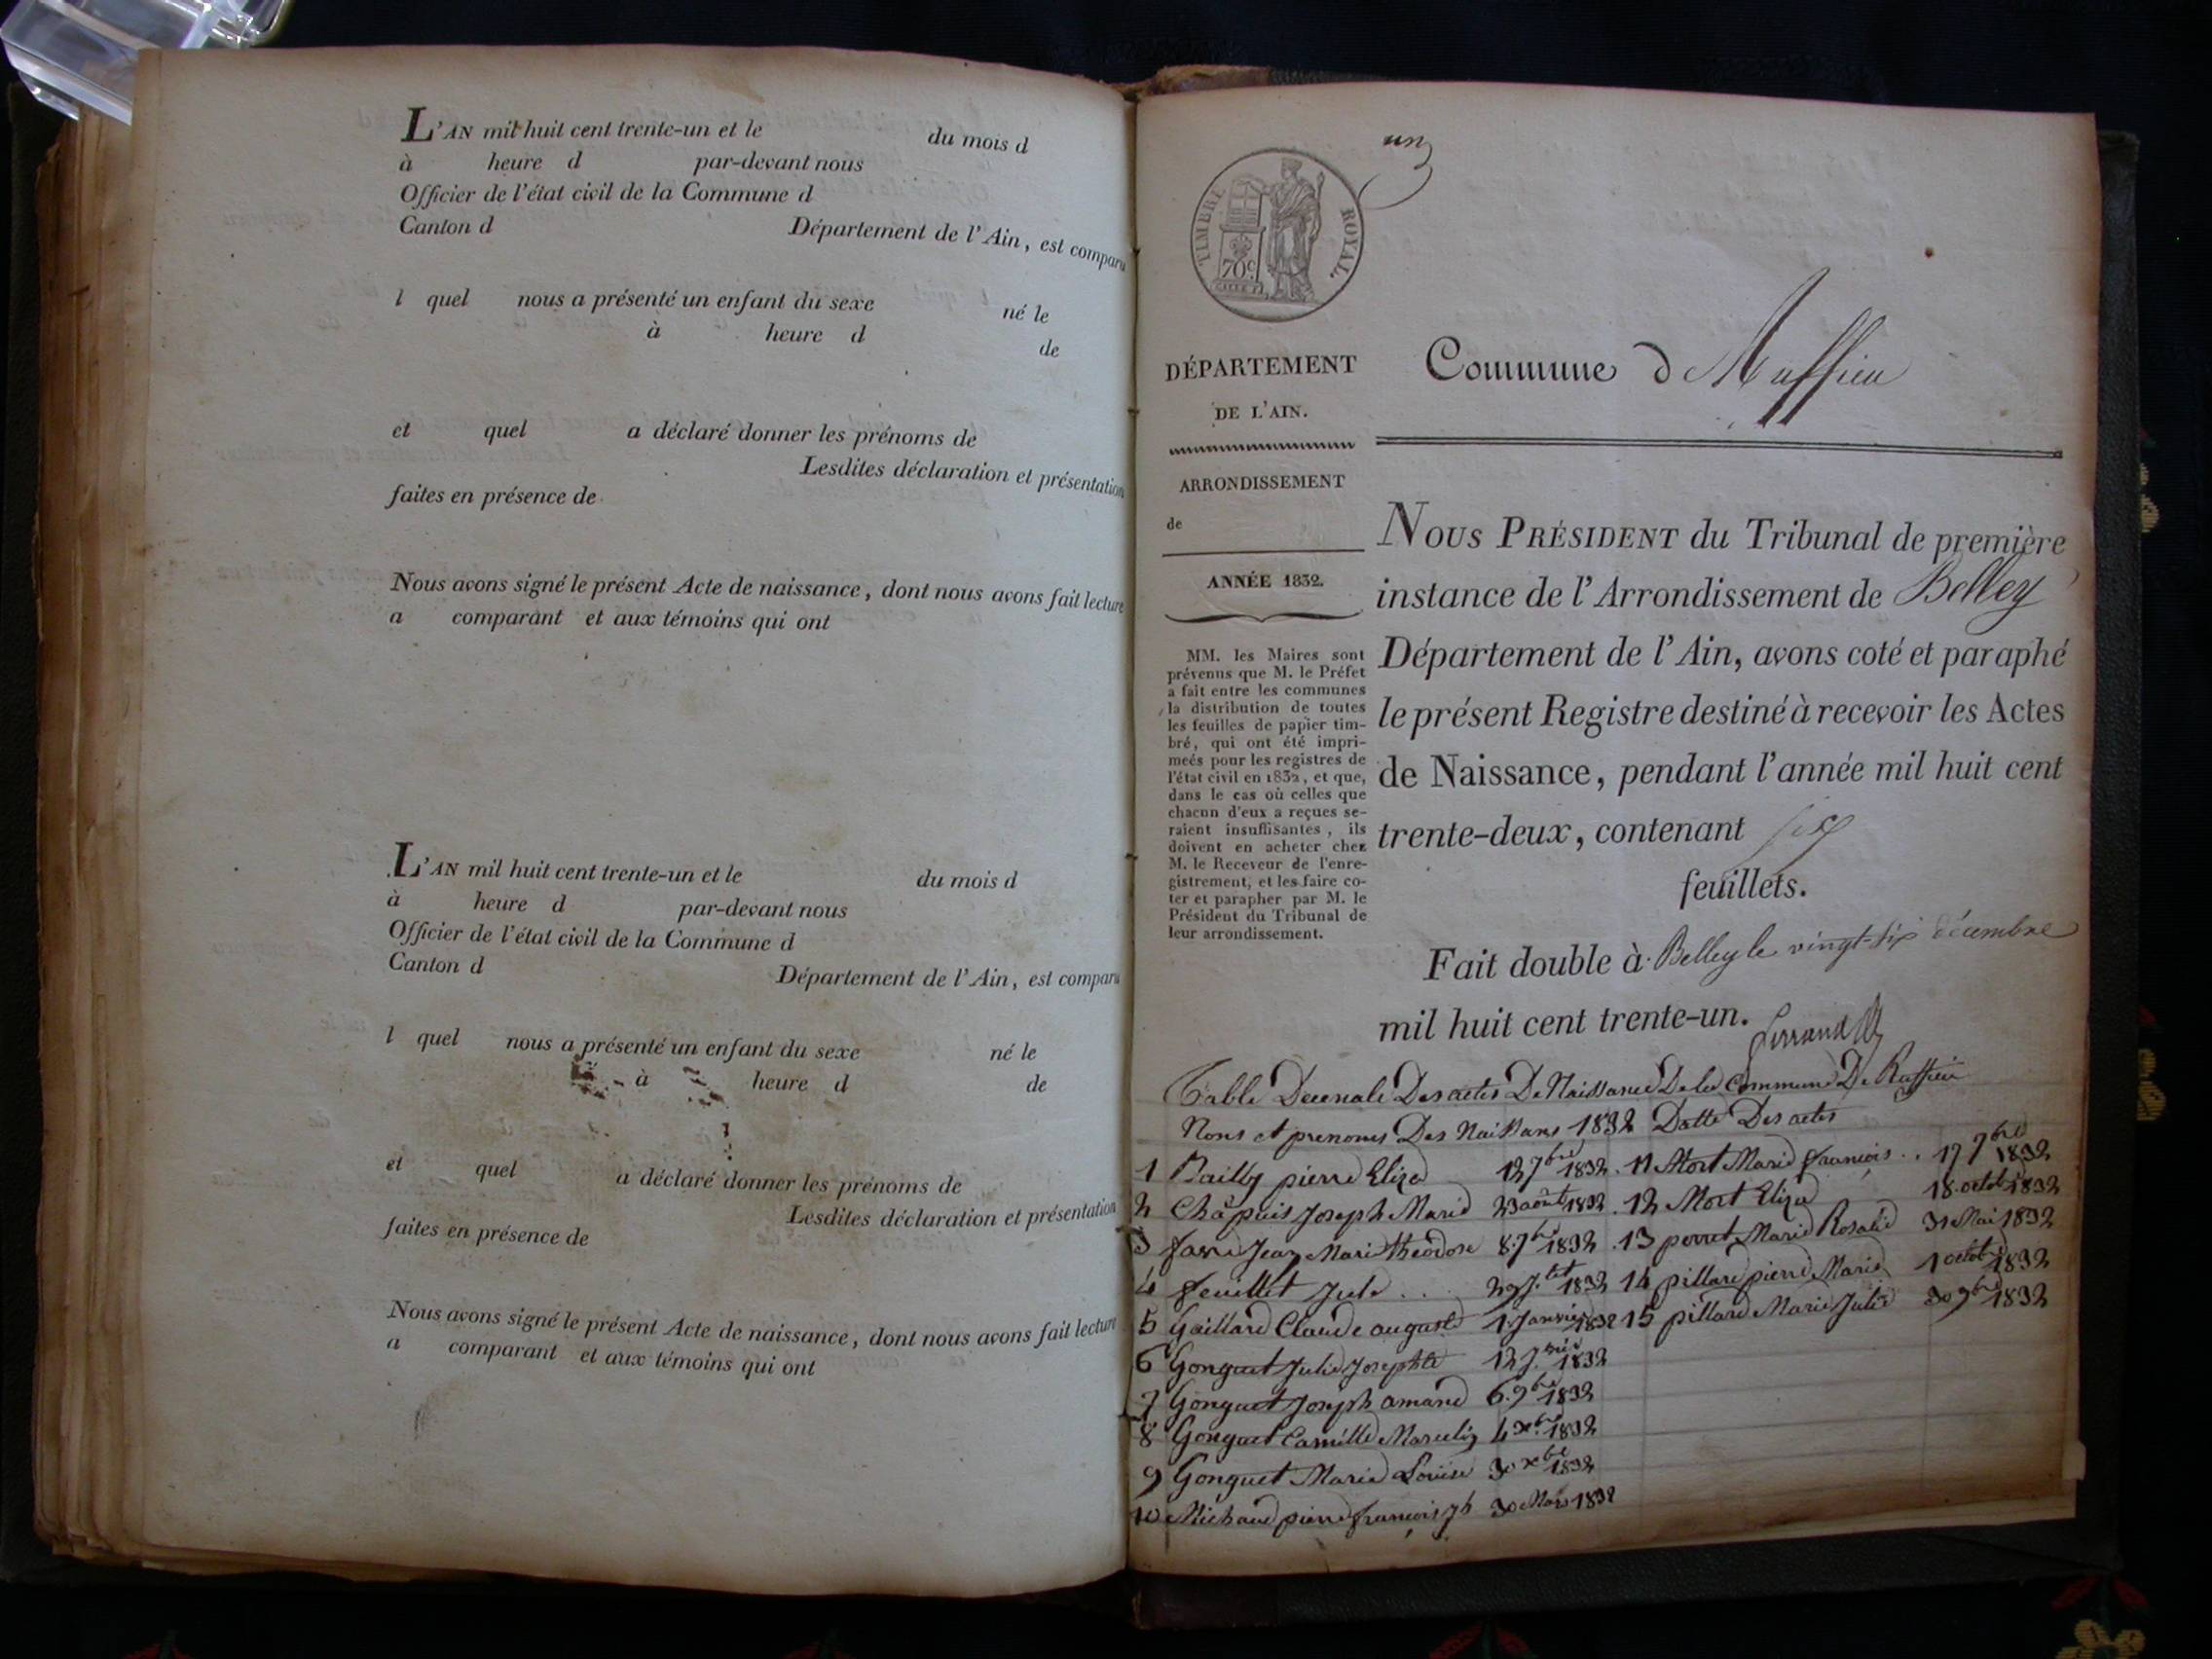 L'AN mil huit cent trente-un et le du mois d
à heure d par-devant nous
Officier de l'état civil de la Commune d
Canton d Département de l'Ain, est comparu
l quel nous a présenté un enfant du sexe né le
à heure d de
et quel a déclaré donner les prénoms de
Lesdites déclaration et présentation
faites en présence de
Nous avons signé le présent Acte de naissance, dont nous avons fait lecture
a comparant et aux témoins qui ont
L'AN mil huit cent trente-un et le du mois d
à heure d par-devant nous
Officier de l'état civil de la Commune d
Canton d Département de l'Ain, est comparu
l quel nous a présenté un enfant du sexe né le
à heure d de
et quel a déclaré donner les prénoms de
Lesdites déclaration et présentation
faites en présence de
Nous avons signé le présent Acte de naissance, dont nous avons fait lecture
a comparant et aux témoins qui ont
un
TIMBRE ROYAL.
70 c.
DÉPARTEMENT
DE L'AIN.
ARRONDISSEMENT
de
ANNÉE 1832.
MM. les Maires sont
prévenus que M. le Préfet
a fait entre les communes
la distribution de toutes
les feuilles de papier tim-
bré, qui ont été impri-
meés pour les registres de
l'état civil en 1832, et que,
dans le cas où celles que
chacun d'eux a reçues se-
raient insuffisantes, ils
doivent en acheter chez
M. le Receveur de l'enre-
gistrement, et les faire co-
ter et parapher par M. le
Président du Tribunal de
leur arrondissement.
Commune d Ruffieu
NOUS PRÉSIDENT du Tribunal de première
instance de l'Arrondissement de Belley
Département de l'Ain, avons coté et paraphé
le présent Registre destiné à recevoir les Actes
de Naissance, pendant l'année mil huit cent
trente-deux, contenant six
feuillets.
Fait double à Belley le vingt-six décembre
mil huit cent trente-un.
Table Decenale Des actes De Naissance De la Commune De Ruffieu
Noms et prenoms Des Naissans 1832 Datte Des actes
1 Bailly pierre Eliza 12 7bre 1832. 11 Mort Marie françois . . 17 7bre 1832
2 Chapuis Joseph Marie 23 août 1832. 12 Mort Eliza 18 octob 1832
3 favre Jean Marie théodore 8. 7bre 1832. 13 perret Marie Rosalie 31 Mai 1832
4 feuillet Jule . . . 29 J.let 1832 14 pillard pierre Marie 1 octob 1832
5 Gaillard Claude auguste 1. Janvier 1832 15 pillard Marie Julie 30 9bre 1832
6 Gonguet Julie Josephte 12 J. 1832
7 Gonguet Joseph amand 6. 9bre 1832
8 Gonguet Camille Marcelin 4 xbre 1832
9 Gonguet Marie Louise 30 xbre 1832
10 Michaud pierre françois jh 30 Mars 1832